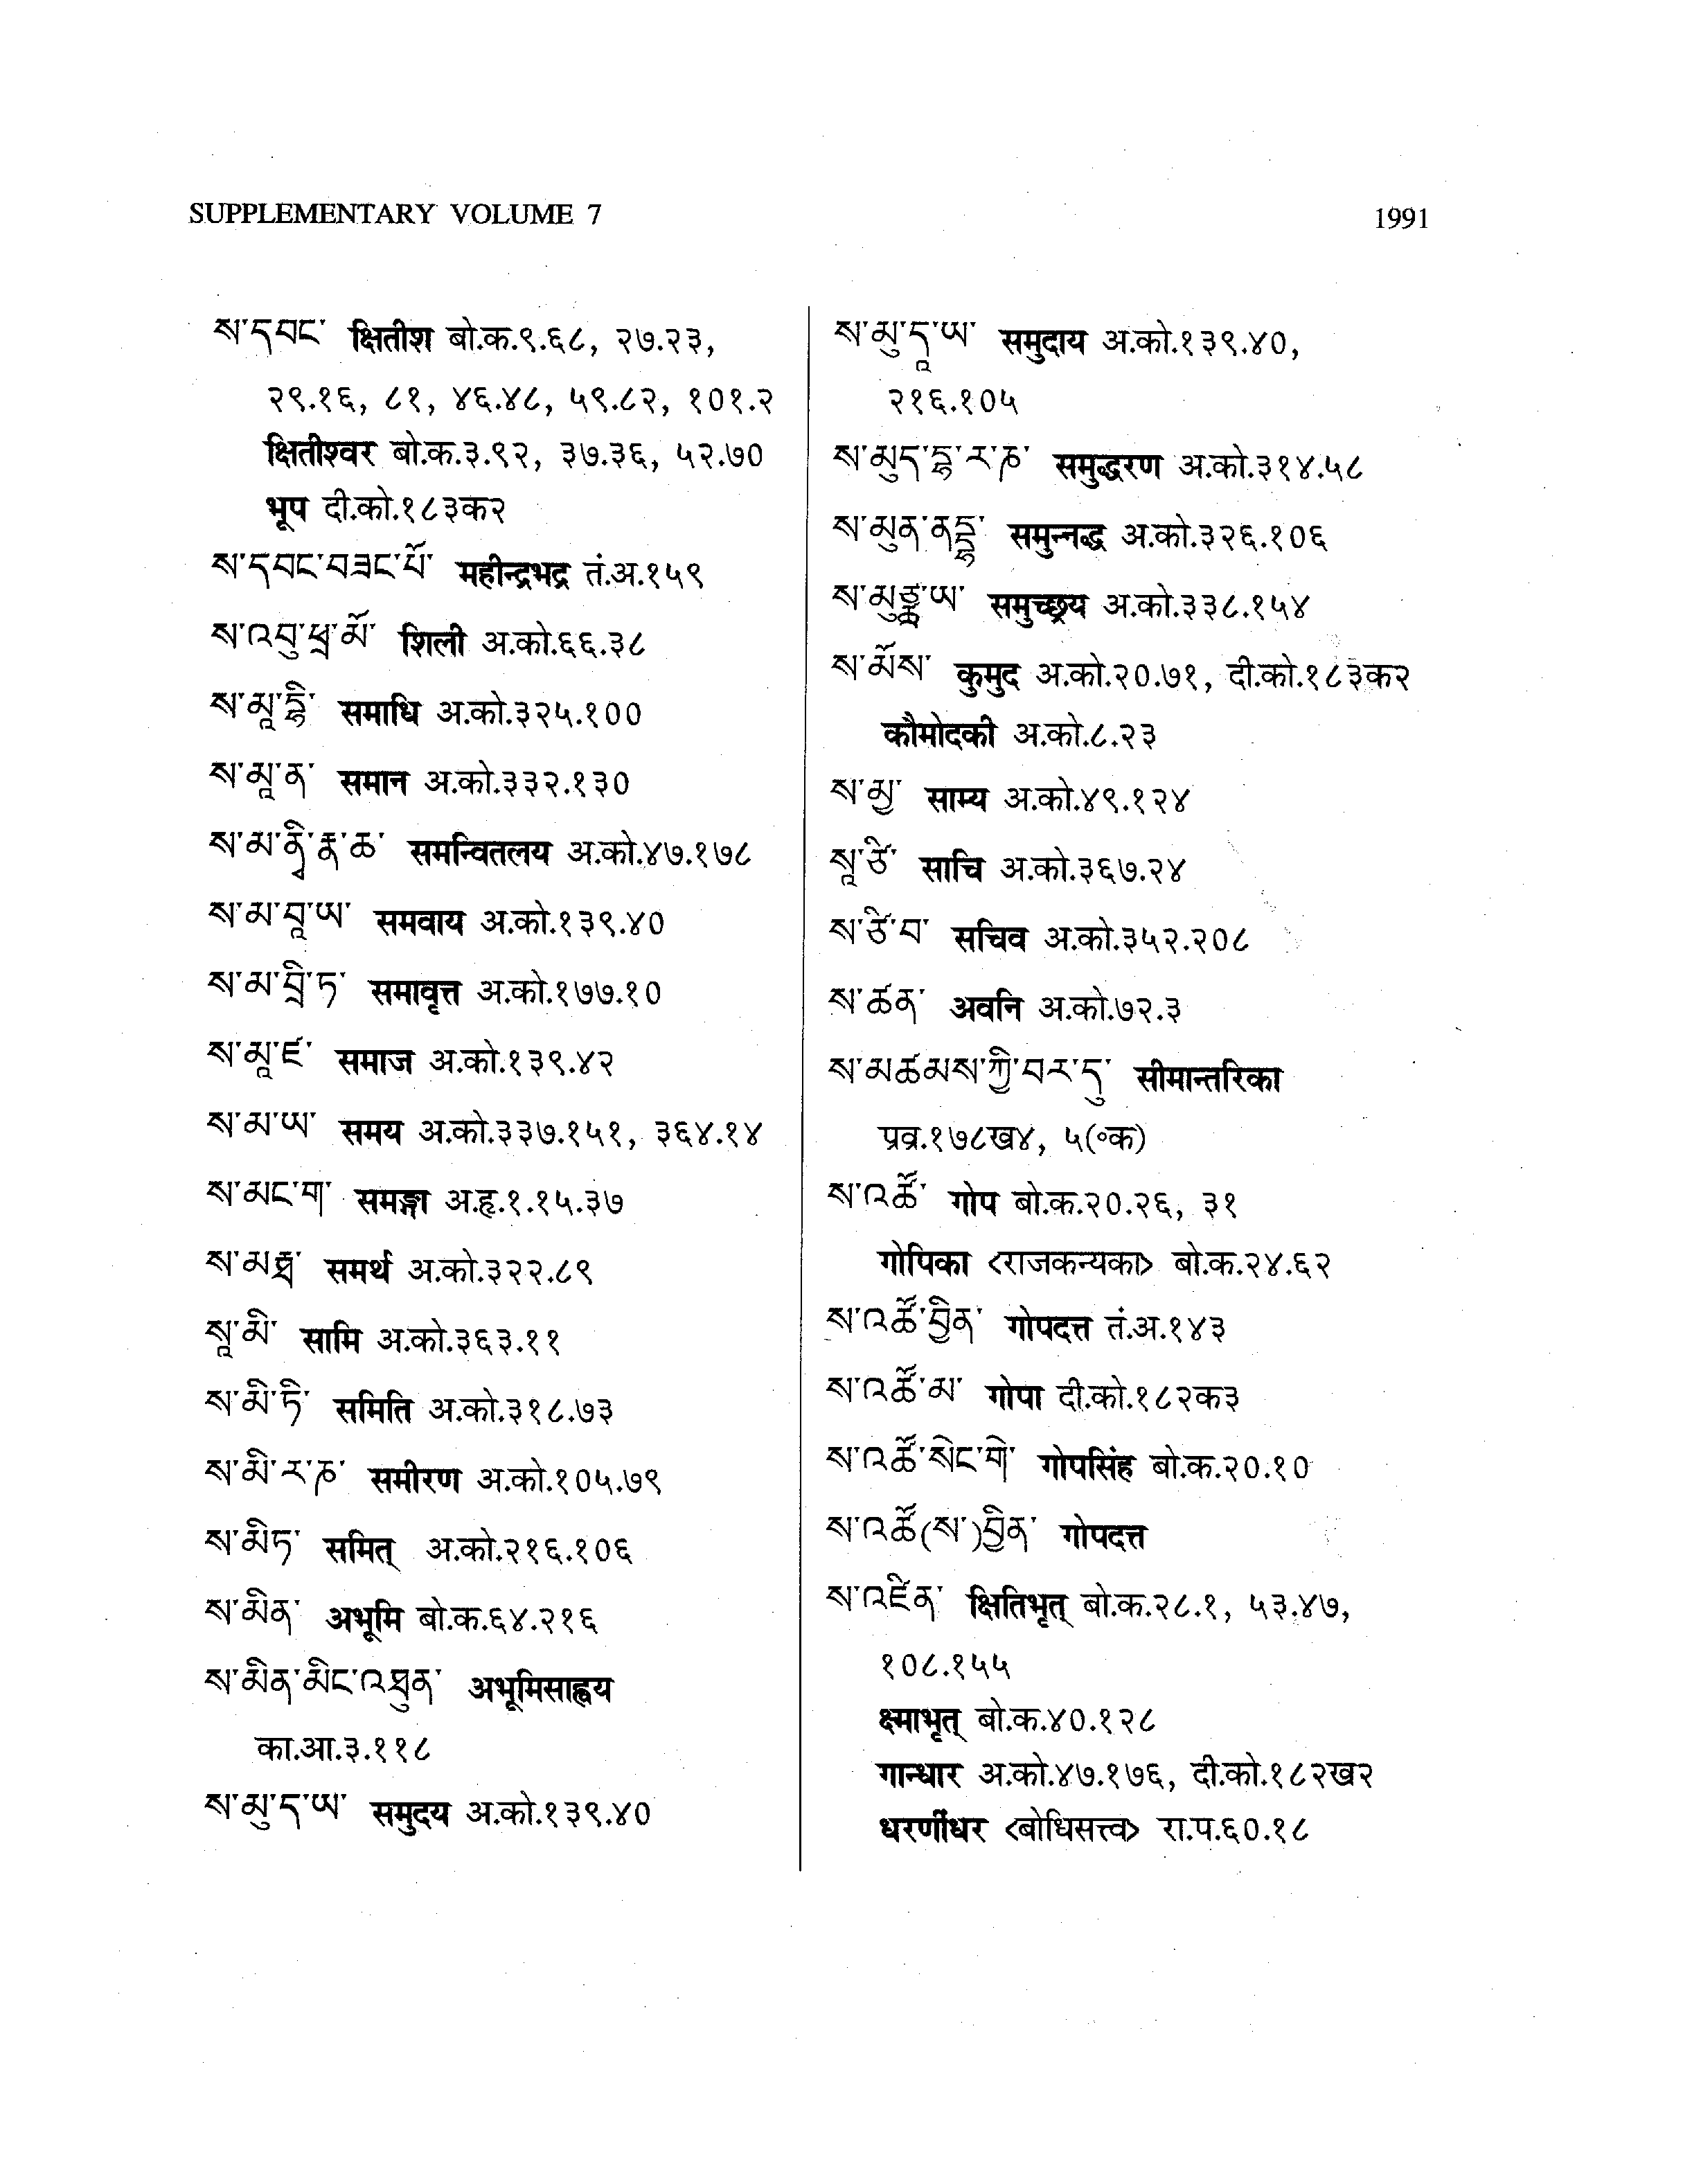 SUPPLEMENTARY VOLUME 7 1991
ས་དབང་ क्षितीश बो.क.९.६८, २७.२३,
२९.१६, ८१, ४६.४८, ५९.८२, १०१.२
क्षितीश्वर बो.क.३.९२, ३७.३६, ५२.७०
भूप दी.को.१८३क२
ས་དབང་བཟང་པོ་ महीन्द्रभद्र तं.अ.१५९
ས་འབུ་ཕྲ་མོ་ शिली अ.को.६६.३८
ས་མཱ་དྷི་ समाधि अ.को.३२५.१००
ས་མཱ་ན་ समान अ.को.३३२.१३०
समन्वितलय अ.को.४७.१७८
ས་མ་བཱ་ཡ་ समवाय अ.को.१३९.४०
ས་མ་བྲྀ་ཏ་ समावृत्त अ.को.१७७.१०
ས་མཱ་ཛ་ समाज अ.को.१३९.४२
ས་མ་ཡ་ समय अ.को.३३७.१५१, ३६४.१४
ས་མང་ག་ समङ्गा अ.हृ.१.१५.३७
समर्थ अ.को.३२२.८९
སཱ་མི་ सामि अ.को.३६३.११
ས་མི་ཏི་ समिति अ.को.३१८.७३
ས་མི་ར་ཎ་ समीरण अ.को.१०५.७९
ས་མིཏ་ समित् अ.को.२१६.१०६
ས་མིན་ अभूमि बो.क.६४.२१६
ས་མིན་མིང་འཐུན་ अभूमिसाह्वय
का.आ.३.११८
ས་མུ་ད་ཡ་ समुदय अ.को.१३९.४०
ས་མུ་དཱ་ཡ་ समुदाय अ.को.१३९.४०,
२१६.१०५
ས་མུད་དྷ་ར་ཎ་ समुद्धरण अ.को.३१४.५८
ས་མུན་ནདྡྷ་ समुन्नद्ध अ.को.३२६.१०६
समुच्छ्रय अ.को.३३८.१५४
ས་མོས་ कुमुद अ.को.२०.७१, दी.को.१८३क२
कौमोदकी अ.को.८.२३
ས་མྱ་ साम्य अ.को.४९.१२४
སཱ་ཙི་ साचि अ.को.३६७.२४
ས་ཙི་བ་ सचिव अ.को.३५२.२०८
ས་ཚན་ अवनि अ.को.७२.३
ས་མཚམས་ཀྱི་བར་དུ་ सीमान्तरिका
प्रव्र.१७८ख४, ५(०क)
ས་འཚོ་ गोप बो.क.२०.२६, ३१
गोपिका <राजकन्यका> बो.क.२४.६२
ས་འཚོ་བྱིན་ गोपदत्त तं.अ.१४३
ས་འཚོ་མ་ गोपा दी.को.१८२क३
ས་འཚོ་སེང་གེ་ गोपसिंह बो.क.२०.१०
ས་འཚོ(ས་)བྱིན་ गोपदत्त
ས་འཛིན་ क्षितिभृत् बो.क.२८.१, ५३.४७,
१०८.१५५
क्ष्माभृत् बो.क.४०.१२८
गान्धार अ.को.४७.१७६, दी.को.१८२ख२
धरणींधर <बोधिसत्त्व> रा.प.६०.१८